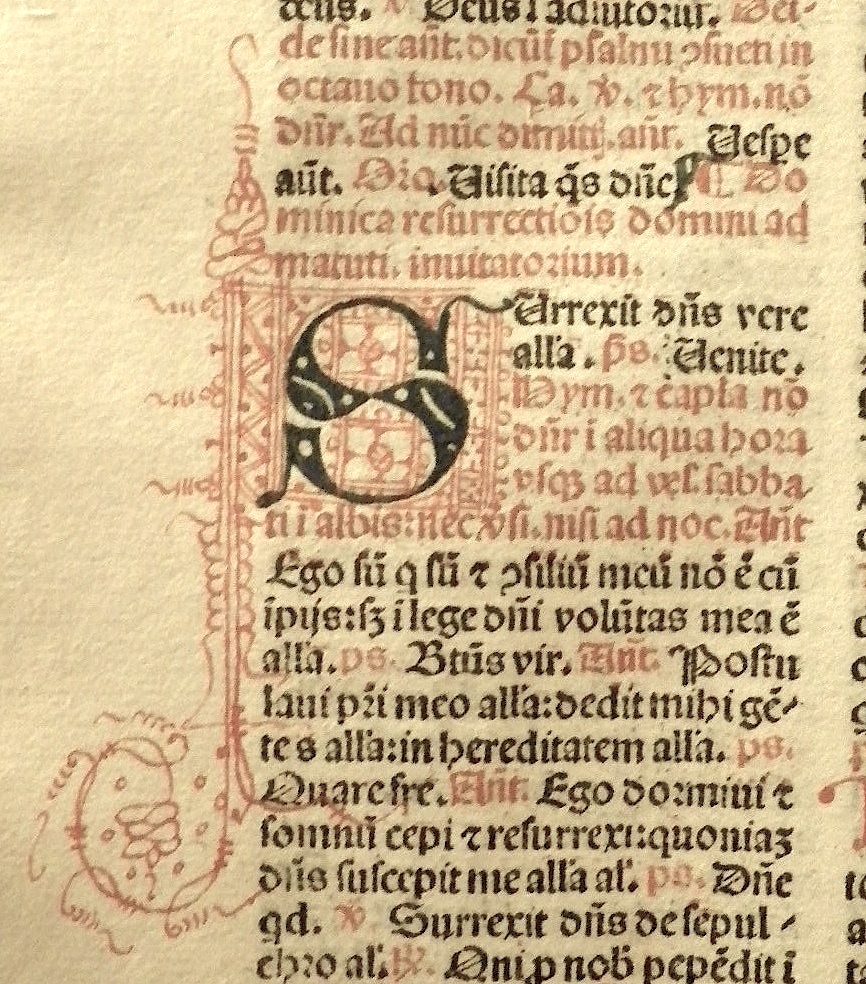 Deus ī adiutoriū. Dei-
de sine añt. dicūt psalmū ↄsueti in
octauo tono. Ca. ℣. ⁊ hym. nō
dn̄r. Ad nūc dimittj. añr. Uespe
aūt. Uisita q̄s dn̄e ¶ Do
minica resurrectiōis domini ad
matuti. inuitatorium.
SUrrexit dn̄s vere
alľa. ps. Uenite.
Hym. ⁊ capľa nō
dn̄r ī aliqua hora
vsqꝫ ad ves̄. sabba
ti ī albis: nec v̄si. nisi ad noc. Añt
Ego sū q sū ⁊ ↄsiliū meū nō ē cū
īpijs: sꝫ ī lege dn̄i volūtas mea ē
alľa. ps. Btūs vir. Añt. Postu
laui pr̄i meo alľa: dedit mihi gē-
tes alľa: in hereditatem alľa. ps.
Quare fre. Añt. Ego dormiui ⁊
somnū cepi ⁊ resurrexi: quoniaꝫ
dn̄s suscepit me alľa aľ. ps. Dn̄e
qd. ℣ Surrexit dn̄s de sepul-
chro aľ. ℟. Qui ꝓ nob̄ pepēdit ī